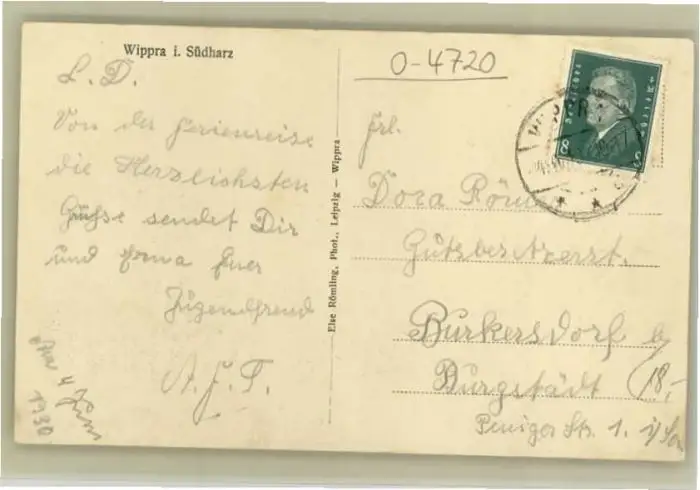 Wippra i. Südharz
L. D.
Von der Ferienreise
die Herzlichsten
Grüße sendet Dir
und Euer
Jugendfreund
A. J. T.
am 4 Juni
1930
Else Römling, Phot., Leipzig — Wippra
0-4720
Frl.
Dora
Gutzbesitzerst.
Burkersdorf b
Burgstädt
Peniger Str. 1. i/Sa
18,-
Deutsches Reich
8 8